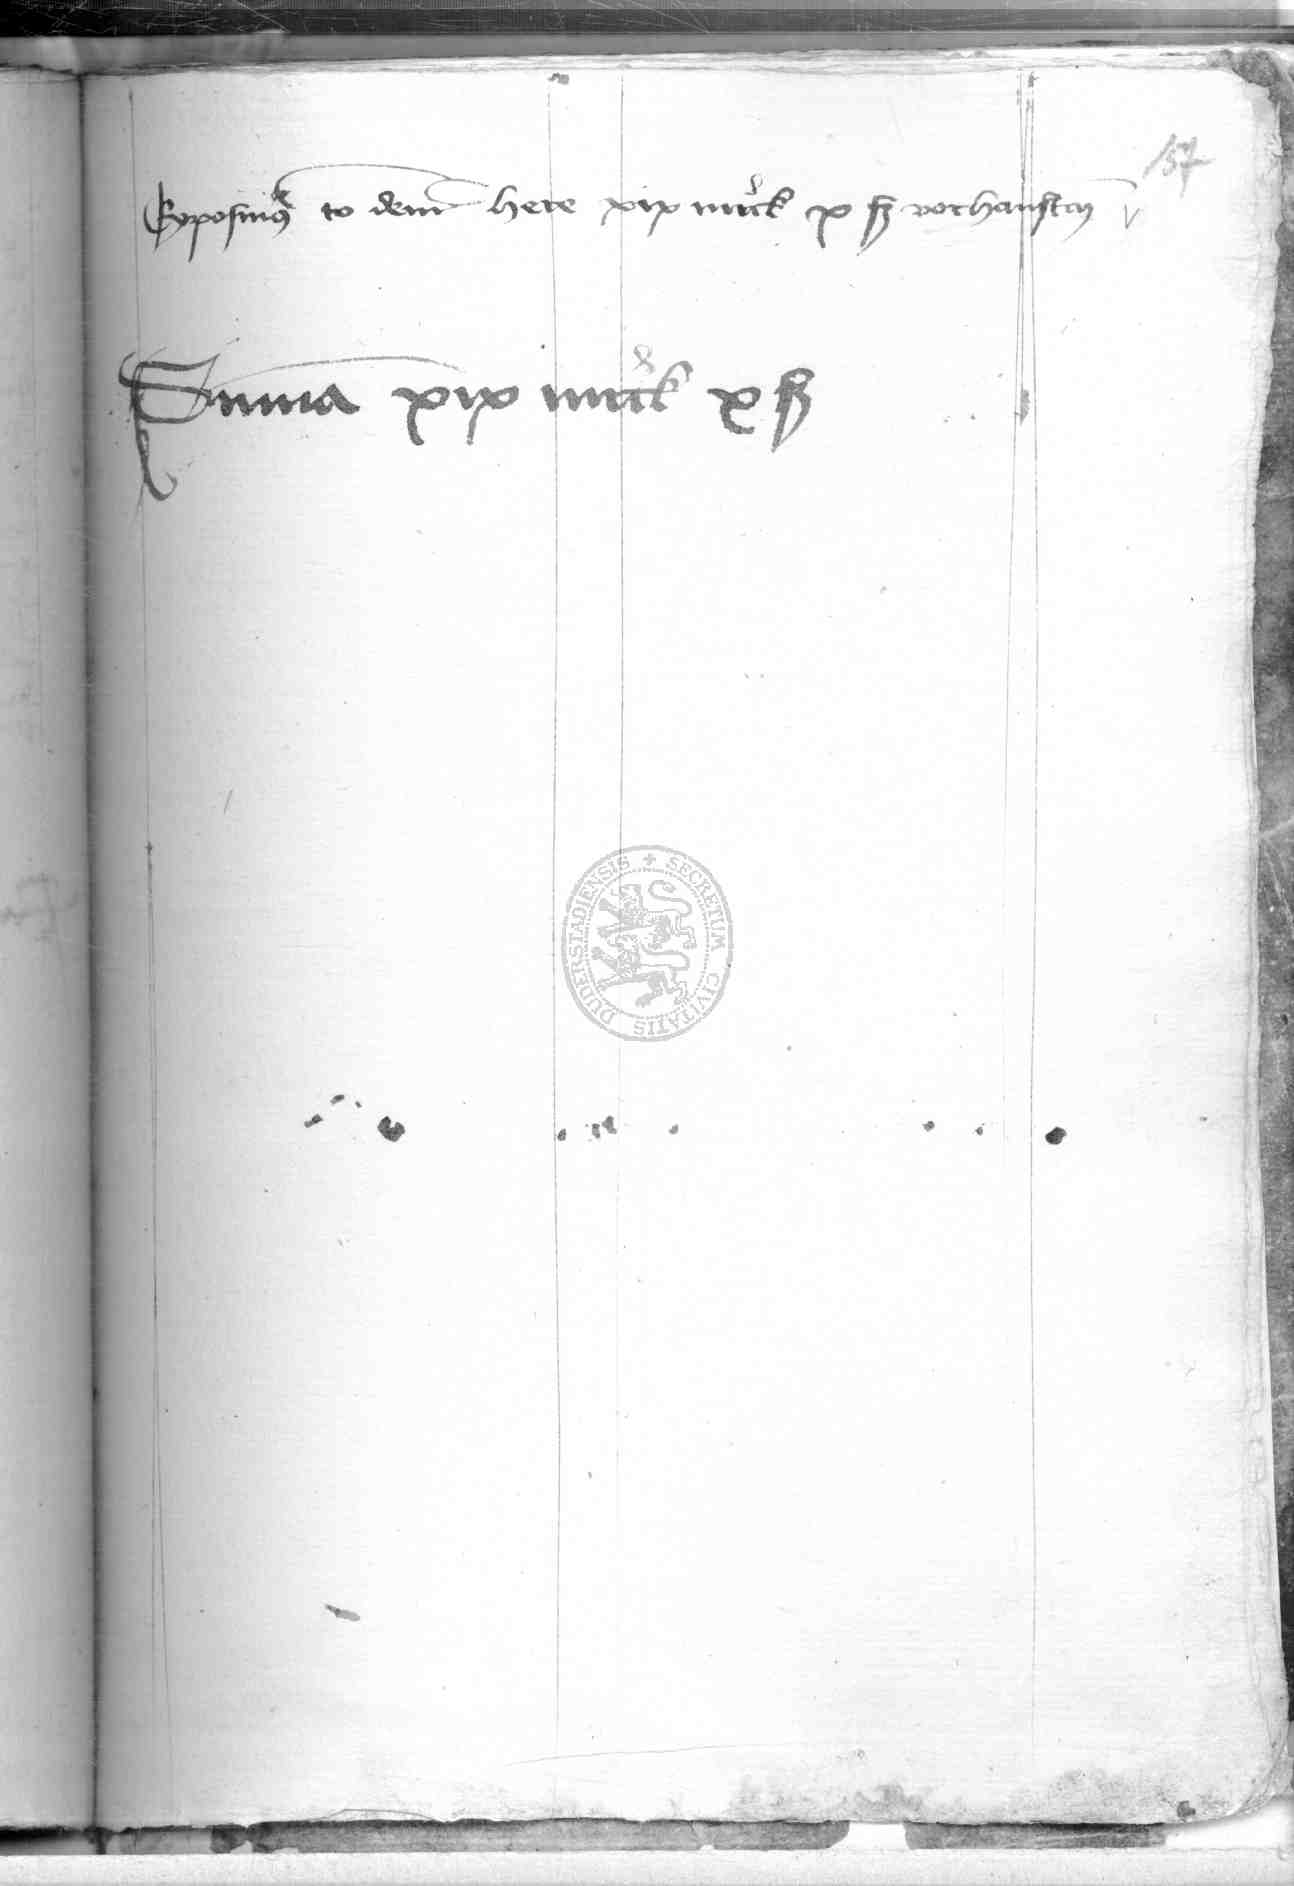 157
Exposuimus to dem here xix marck x ß vorhanstan
Summa xix marck x ß
SECRETUM CIVITATIS DUDERSTADIENSIS